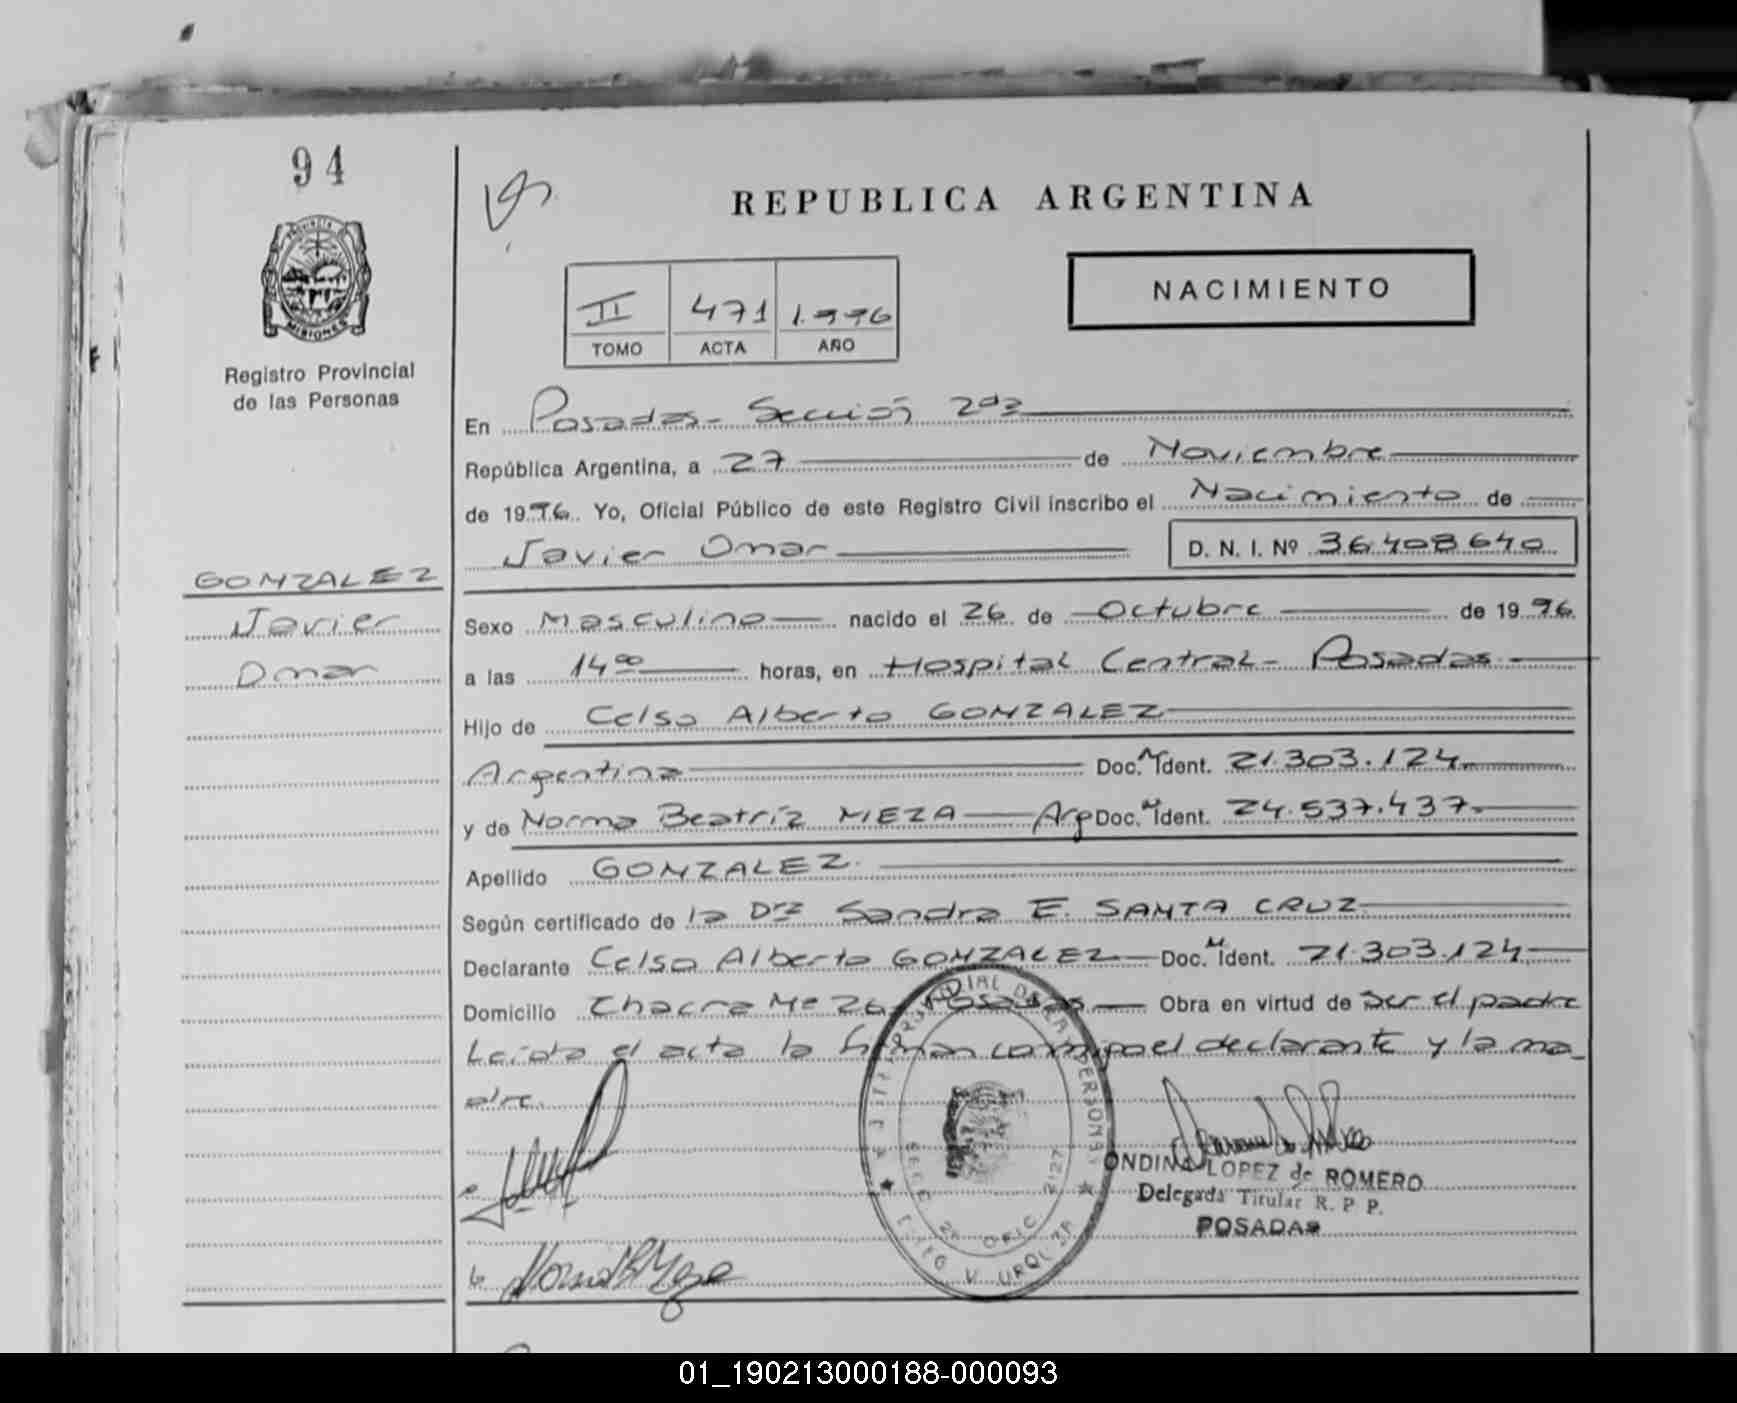 94
REPUBLICA ARGENTINA
NACIMIENTO
II 471 1.996
TOMO ACTA AÑO
PROVINCIA
MISIONES
Registro Provincial
de las Personas
En Posadas- Sección 2da
República Argentina, a 27 de Noviembre
de 1996. Yo, Oficial Público de este Registro Civil inscribo el Nacimiento de
Javier Omar D. N. I. Nº 36.408.640
GONZALEZ
Javier
Omar
Sexo Masculino nacido el 26 de Octubre de 1996.
a las 14 00 horas, en Hospital Central- Posadas
Hijo de Celso Alberto GONZALEZ
Argentina Doc. N Ident. 21.303.124
y de Norma Beatríz MEZA Arg Doc. N Ident. 24.537.437.
Apellido GONZALEZ.
Según certificado de la Dra Sandra E. SANTA CRUZ
Declarante Celso Alberto GONZALEZ Doc. N Ident. 21.303.124
Domicilio Chacra Nº 26- Posadas Obra en virtud de ser el padre
Leída el acta la firman conmigo el declarante y la ma-
dre.
ONDINA LOPEZ de ROMERO
Delegada Titular R. P. P.
POSADAS
SECC 2a OFIC. 2127
V URQUIZA
01_190213000188-000093